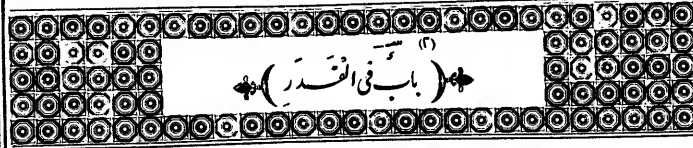 (٢)
بابٌ فى القَدَرِ